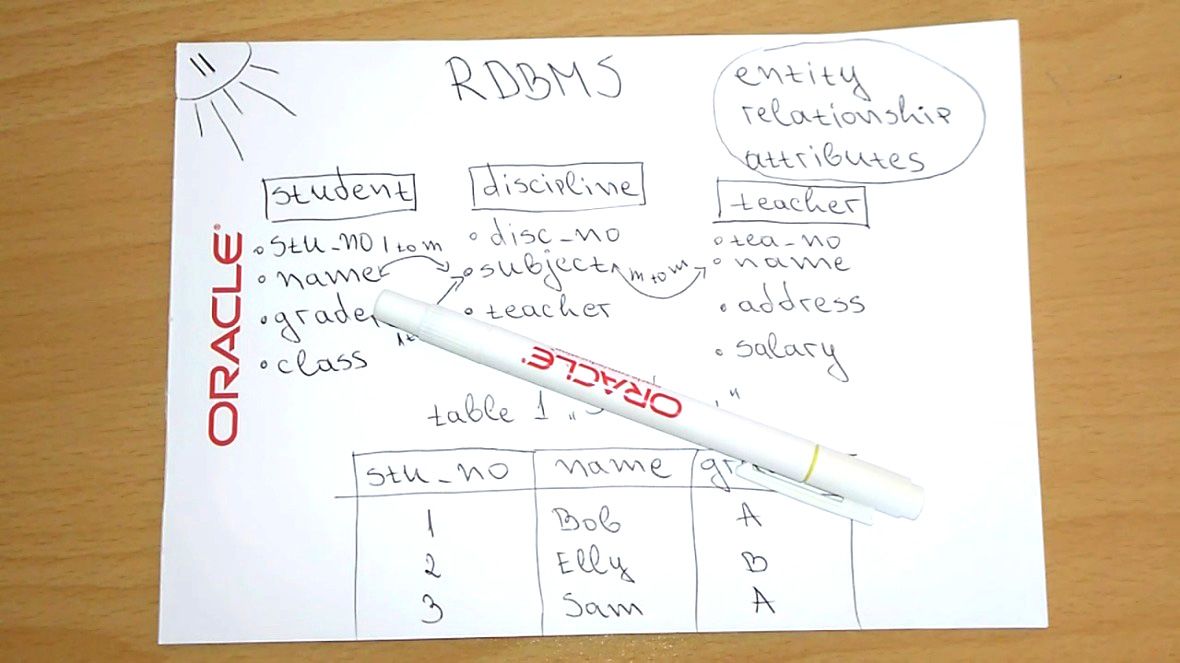 RDBMS
entity
relationship
attributes
student
stu_no
name
grade
class
1 to m
discipline
disc_no
subject
teacher
m to m
teacher
tea_no
name
address
salary
ORACLE
ORACLE
table 1
stu_no name
1 Bob A
2 Elly B
3 Sam A